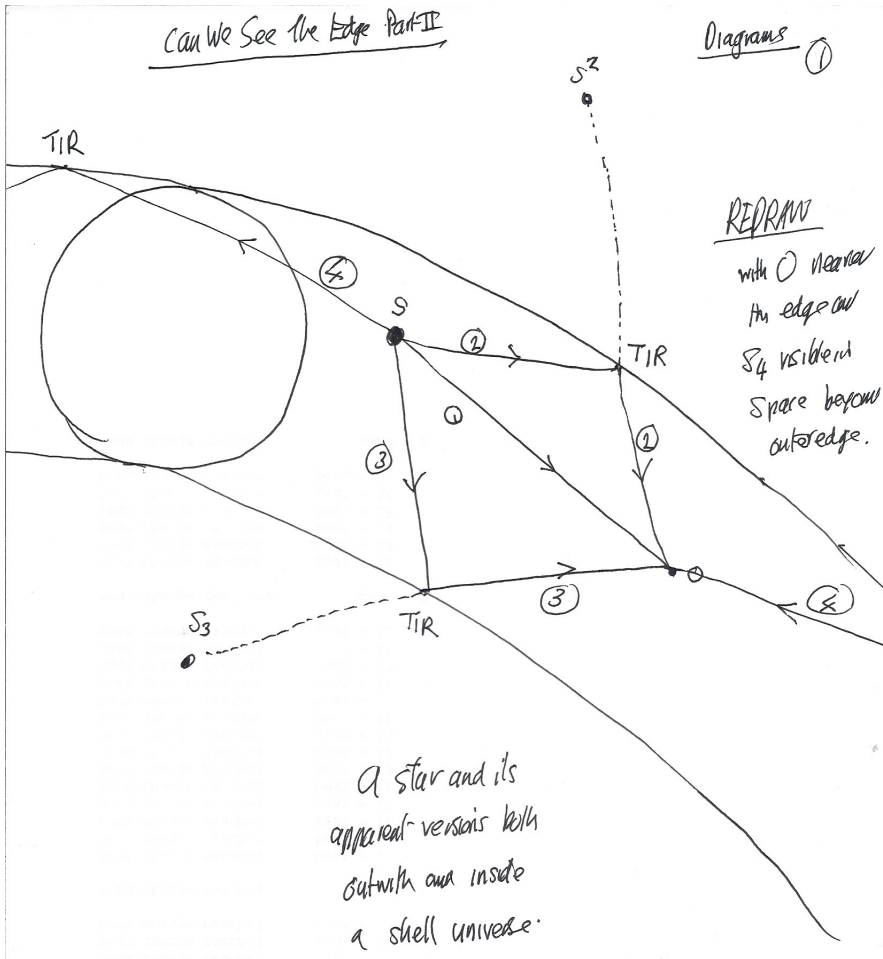 Can We See The Edge Part II
Diagrams ①
S2
TIR
REDRAW
with O nearer
the edge and
S4 visible in
Space beyond
outer edge.
④
S
②
TIR
①
②
③
O
③
④
S3
TIR
A star and its
apparent versions both
outwith and inside
a shell universe.